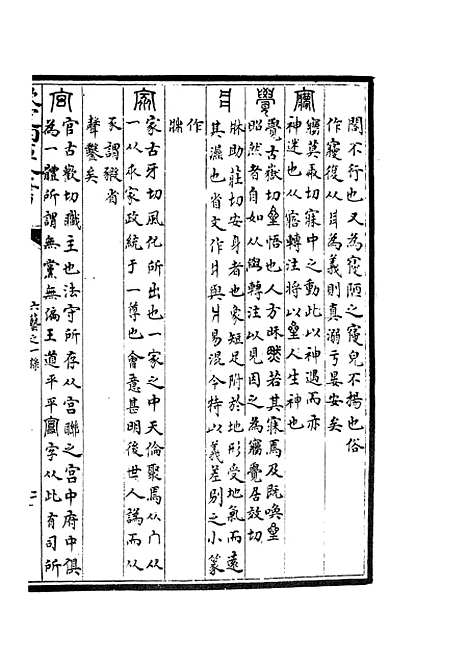 閤不行也又為寢陋之寢兒不揚也俗
作寢從从爿為義則真溺亏㝠安矣
㝱
㝱莫永切寐中之動此以神遇而亦
神迷也从宿轉注將以㘴人生神也
覺
覺古嶽切㘴悟也人方昧㬢若其寐焉及既喚㘴
昭然者自如从㝱轉注以見因之為寤覺居效切
爿
牀助莊切安身者也象短足附於地形受地氣而遠
其濕也省文作爿與片易混今特以義差別之小篆
作
牀
家
家古牙切風化所出也一家之中天倫聚焉从冂从
一以从豕家政統于一尊也會意甚明後世人譌而从
豕謂豭省
聲鑿矣
官
官古歡切職主也法守所存从宫聯之宫中府中俱
為一體所謂無黨無偏王道平平 字从此有司所
六藝之一錄